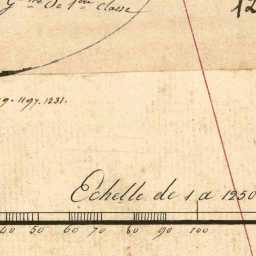 de 1ère classe
12
g. 1197. 1231.
Echelle de 1 a 1250
40 50 60 70 80 90 100